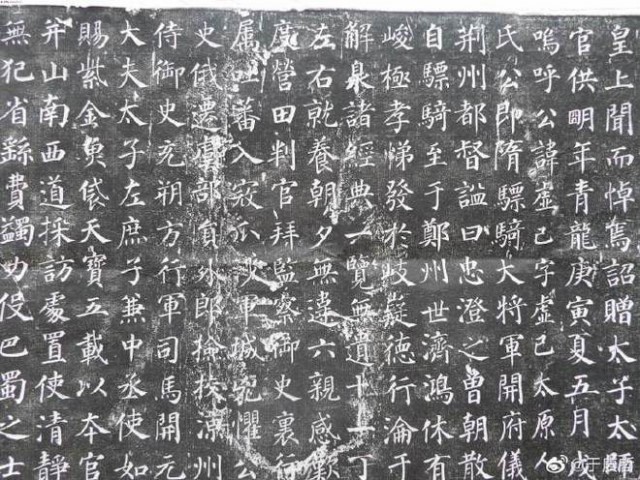 皇上聞而悼焉詔贈太子太師
官供明年青龍庚寅夏五月戊
嗚呼公諱虛己字虛己太原人
氏公即隋驃騎大將軍開府儀
荊州都督謚曰忠澄之曾朝散
自驃騎至于鄭州世濟鴻休有
峻極孝悌發於岐嶷德行淪于
解泉諸經典一覽無遺十一丁
左右就養朝夕無違六親感歎
廣營田判官拜監察御史裏行
属吐蕃入寇瓜沙軍城兇懼公
史俄遷虞部員外郎檢校涼州
侍御史充朔方行軍司馬開元
大夫太子左庶子兼中丞使如
賜紫金魚袋天寶五載以本官
并山南西道採訪處置使清靜
無犯省繇費蠲力役巴蜀之士